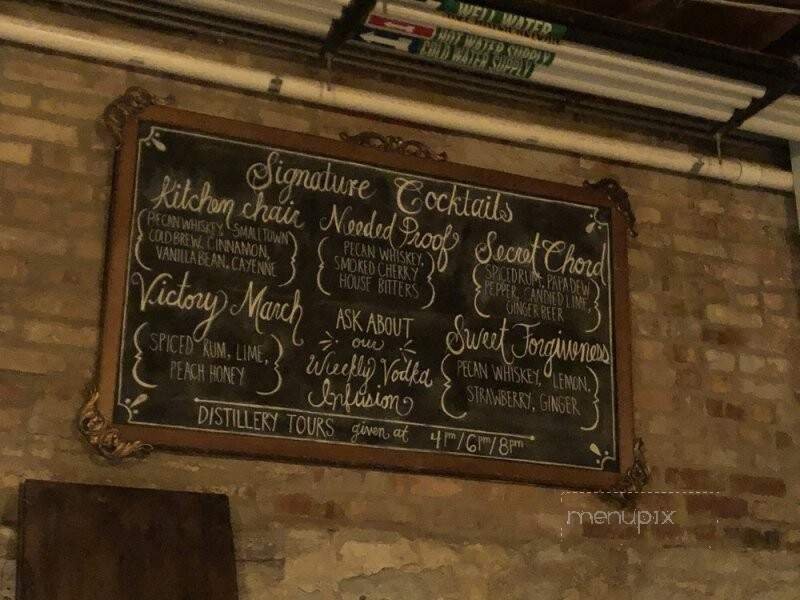 WELL WATER
HOT WATER SUPPLY
COLD WATER SUPPLY
Signature Cocktails
Kitchen chair
PECAN WHISKEY, SMALLTOWN
COLD BREW, CINNAMON,
VANILLA BEAN, CAYENNE
Needed Proof
PECAN WHISKEY,
SMOKED CHERRY
HOUSE BITTERS
Secret Chord
SPICED RUM, PAPA DEW
PEPPER, CANDIED LIME,
GINGER BEER
Victory March
SPICED RUM, LIME,
PEACH HONEY
ASK ABOUT
our
Weekly Vodka
Infusion
Sweet Forgiveness
PECAN WHISKEY, LEMON,
STRAWBERRY, GINGER
DISTILLERY TOURS given at 4pm/6pm/8pm
menupix